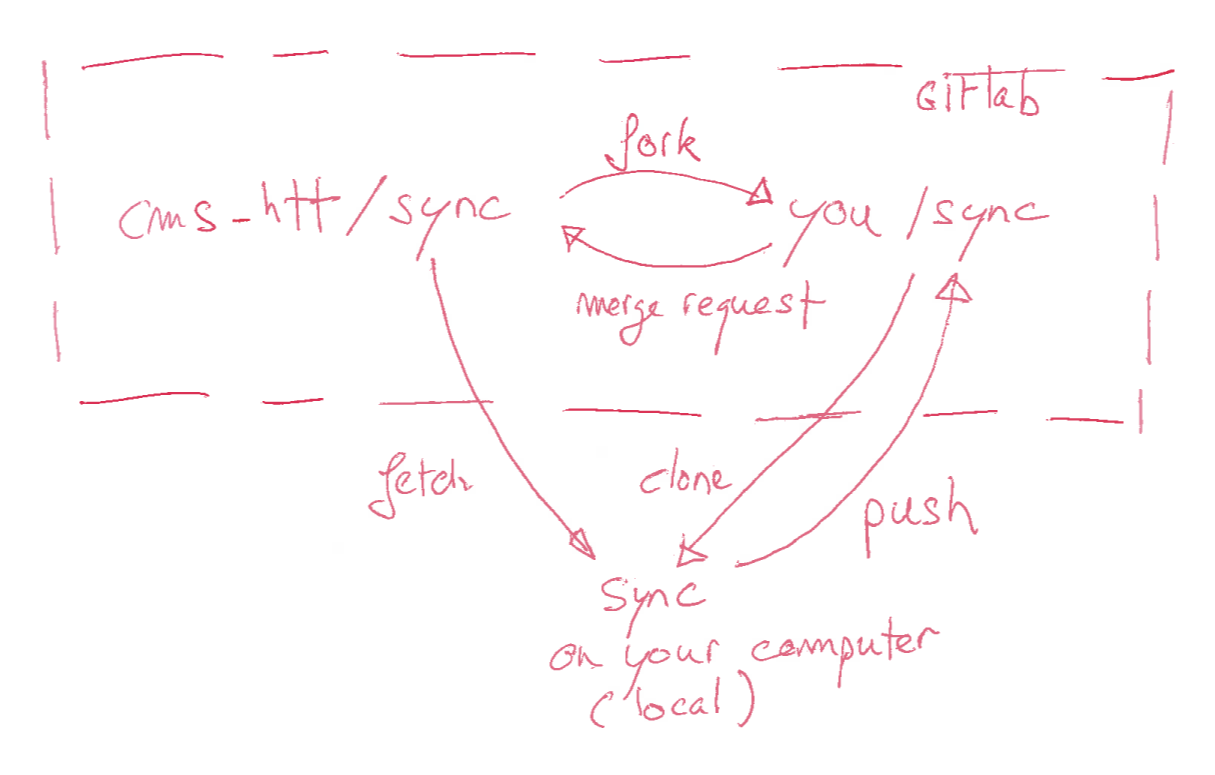 GitLab
fork
cms-htt/sync
you/sync
merge request
fetch
clone
push
sync
on your computer
(local)